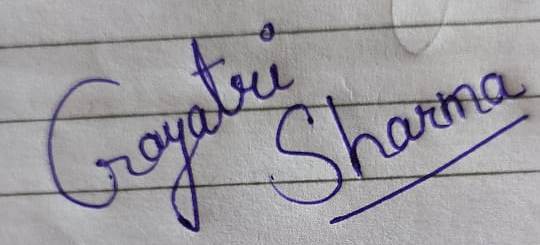 Gayatri
Sharma